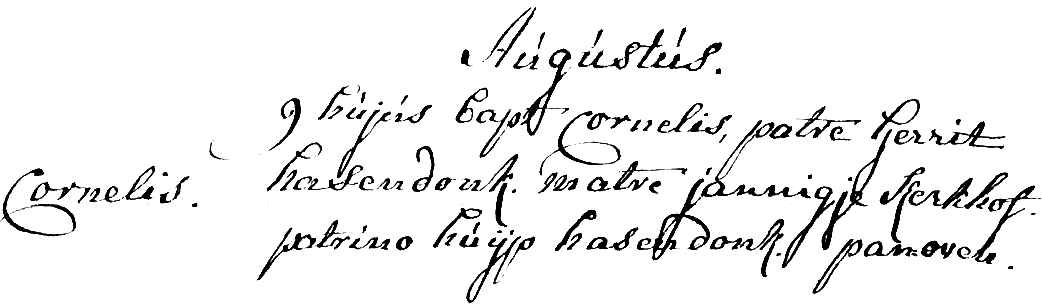 Augustus.
9 hujus bapt Cornelis, patre Gerrit
Cornelis. hasendonk. matre jannigje Kerkhof.
patrino huijp hasendonk. panoven.